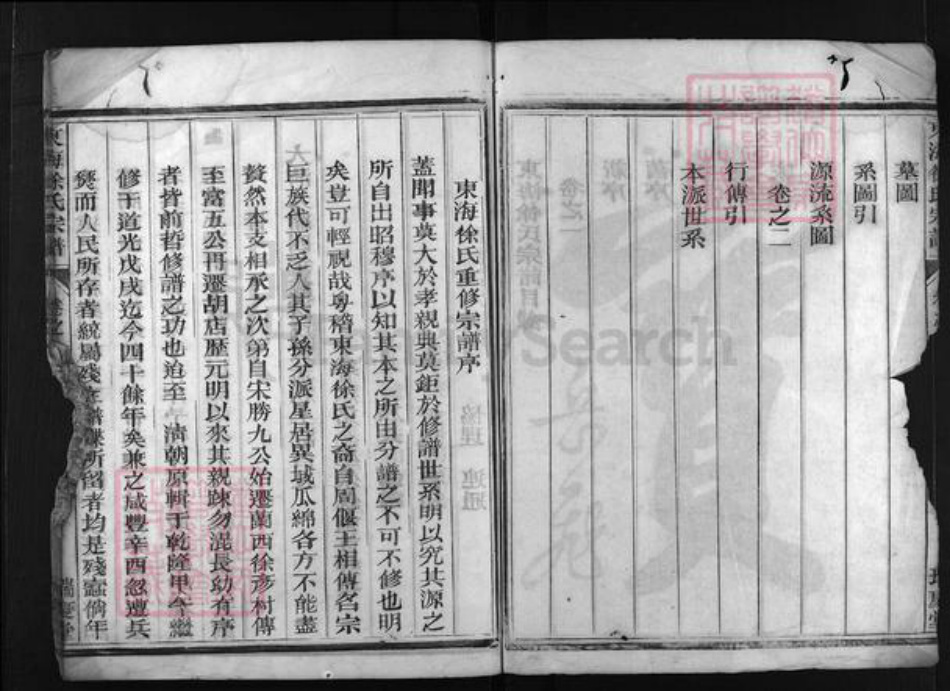 墓圖
系圖引
源流系圖
卷之二
行傳引
本派世系
東海徐氏重修宗譜序
蓋聞事莫大於孝親典莫鉅於修譜世系明以究其源之
所自出昭穆序以知其本之所由分譜之不可不修也明
矣豈可輕視哉粵稽東海徐氏之裔自周偃王相傳名宗
巨族代不乏人其子孫分派星居異域瓜綿各方不能盡
贅然本支相承之次第自宋勝九公始遷蘭西徐彥村傳
至富五公再遷胡店歷元明以來其親疎勿混長幼有序
者皆前哲修譜之功也迨至 清朝原輯于乾隆甲午繼
修于道光戊戌迄今四十餘年矣兼之咸豐辛酉忽遭兵
燹而人民所存者統屬殘年譜牒所留者均是殘蠹倘年
東海徐氏宗譜